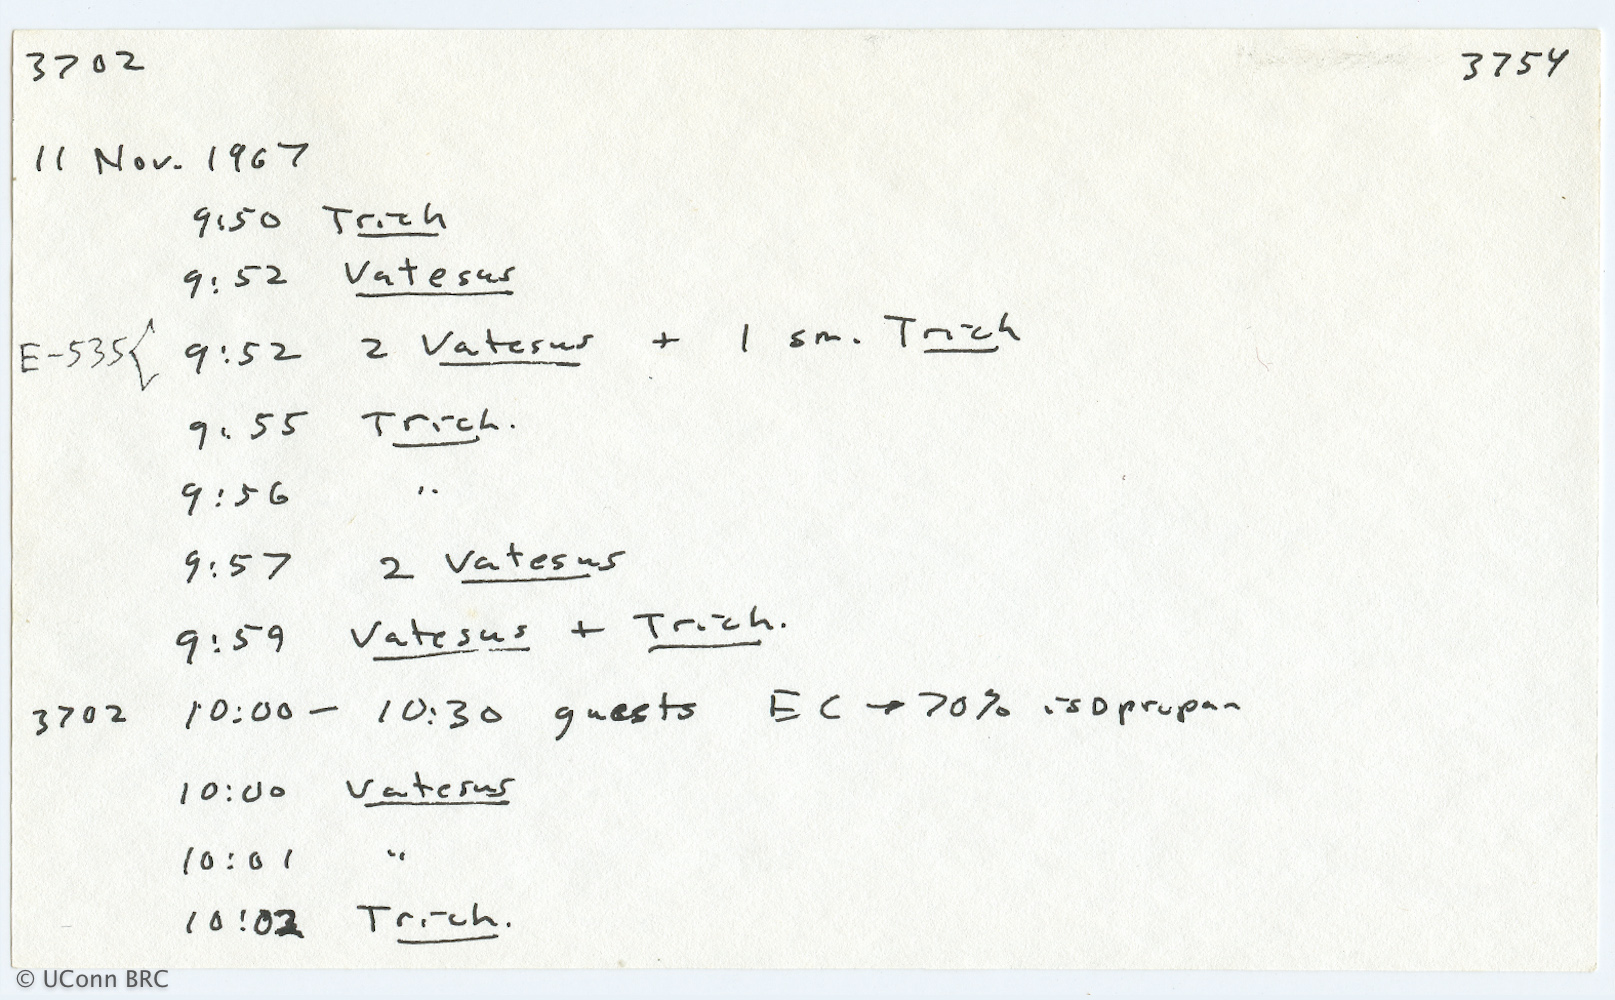 3702 3754
11 Nov. 1967
9:50 Trich
9:52 Vatesus
E-535 { 9:52 2 Vatesus + 1 sm. Trich
9:55 Trich.
9:56 "
9:57 2 Vatesus
9:59 Vatesus + Trich.
3702 10:00 - 10:30 guests EC → 70% isopropan
10:00 Vatesus
10:01 "
10:02 Trich.
© UConn BRC